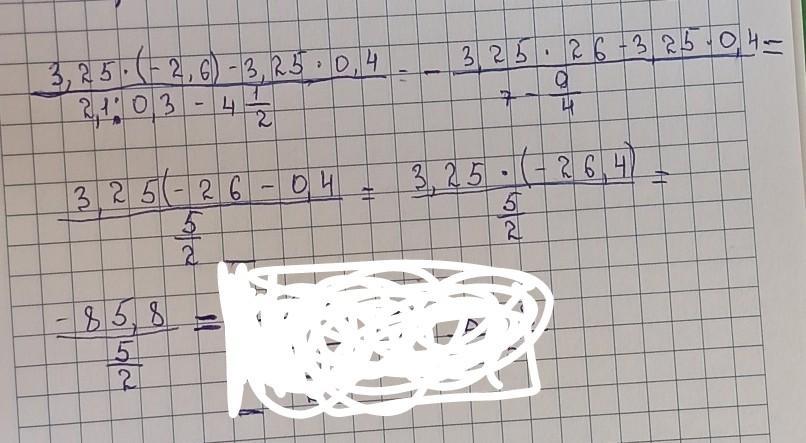 3,25·(-2,6)-3,25·0,4 / 2,1:0,3 - 4 1/2 = - 3,25·26-3,25·0,4 / 7 - 9/4 =
3,25(-26-0,4 / 5/2 = 3,25·(-26,4) / 5/2 =
-85,8 / 5/2 =